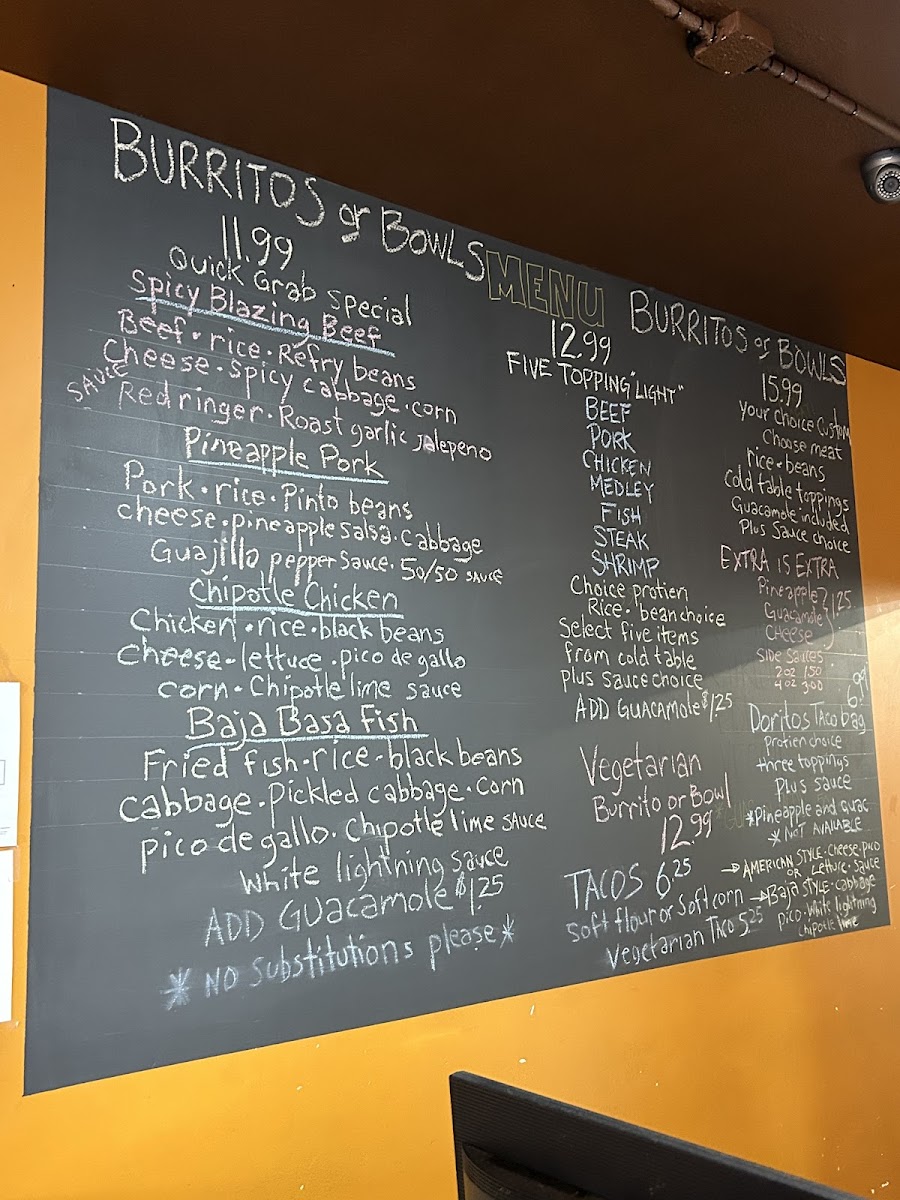 BURRITOS or BOWLS
11.99
Quick Grab special
Spicy Blazing Beef
Beef · rice · Refry beans
Cheese · spicy cabbage · corn
SAUCE Red ringer · Roast garlic jalepeno
Pineapple Pork
Pork · rice · Pinto beans
cheese · pineapple salsa · cabbage
Guajillo pepper sauce · 50/50 sauce
Chipotle Chicken
Chicken · rice · black beans
cheese · lettuce · pico de gallo
corn · Chipotle lime sauce
Baja Basa Fish
Fried fish · rice · black beans
cabbage · Pickled cabbage · corn
pico de gallo · chipotle lime sauce
white lightning sauce
ADD GUacamole $1.25
* NO substitutions please *
MENU
12.99
FIVE TOPPING "LIGHT"
BEEF
PORK
CHICKEN
MEDLEY
FISH
STEAK
SHRIMP
Choice protien
Rice · bean choice
Select five items
from cold table
plus sauce choice
ADD GUACAMOLE $1.25
Vegetarian
Burrito or Bowl
12.99
TACOS 6.25
soft flour or Soft corn
vegetarian Taco 5.25
BURRITOS or BOWLS
15.99
your choice Custom
Choose meat
rice · beans
Cold table toppings
Guacamole included
Plus Sauce choice
EXTRA iS EXTRA
Pineapple
Guacamole } 1.25
CHEESE
Side sauces
2oz 1.50
4oz 3.00
6.99
Doritos Taco bag
Protien choice
three toppings
Plus sauce
*Pineapple and guac
* NOT AVAILABLE
→ AMERICAN STYLE · cheese · pico
OR Lettuce · Sauce
→ Baja STYLE · cabbage
pico · white lightning
chipotle lime